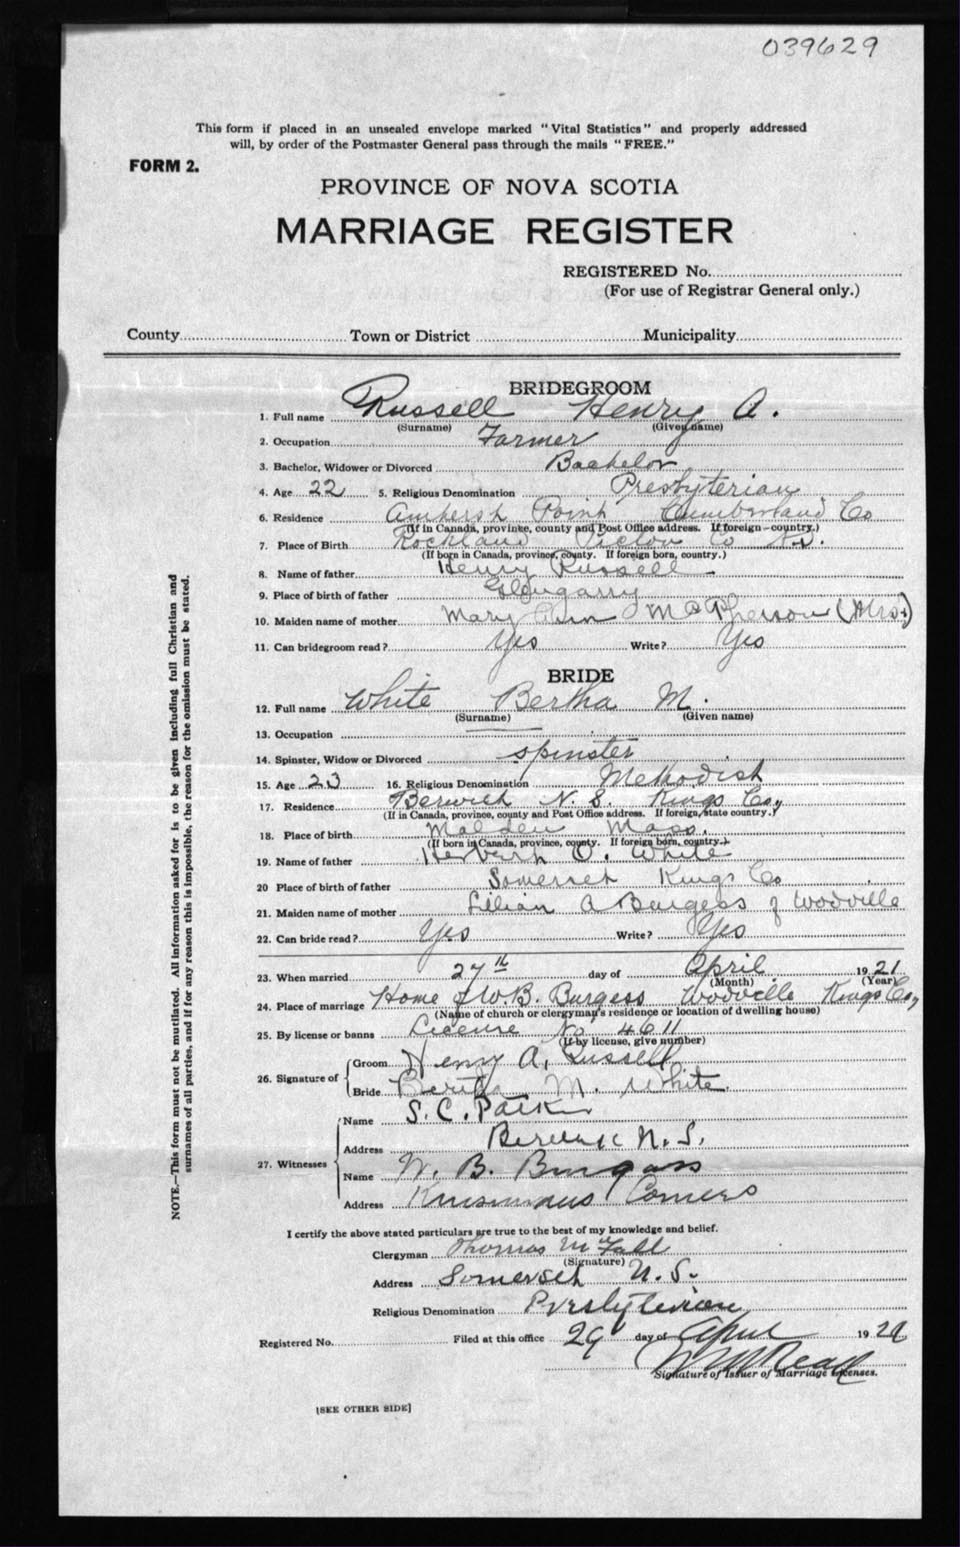 039629
This form if placed in an unsealed envelope marked "Vital Statistics" and properly addressed
will, by order of the Postmaster General pass through the mails "FREE."
FORM 2.
PROVINCE OF NOVA SCOTIA
MARRIAGE REGISTER
REGISTERED No.
(For use of Registrar General only.)
County Town or District Municipality
BRIDEGROOM
1. Full name Russell Henry A.
(Surname) (Given name)
2. Occupation Farmer
3. Bachelor, Widower or Divorced Bachelor
4. Age 22 5. Religious Denomination Presbyterian
6. Residence Amherst Point Cumberland Co
(If in Canada, province, county and Post Office address. If foreign—country.)
7. Place of Birth Rockland Pictou Co N.S.
(If born in Canada, province, county. If foreign born, country.)
8. Name of father Henry Russell
9. Place of birth of father Glengarry
10. Maiden name of mother Mary Ann McPherson (Mrs.)
11. Can bridegroom read? Yes Write? Yes
BRIDE
12. Full name White Bertha M.
(Surname) (Given name)
13. Occupation
14. Spinster, Widow or Divorced spinster
15. Age 23 16. Religious Denomination Methodist
17. Residence Berwick N. S. Kings Co,
(If in Canada, province, county and Post Office address. If foreign, state country.)
18. Place of birth Malden Mass.
(If born in Canada, province, county. If foreign born, country.)
19. Name of father Herbert O. White
20 Place of birth of father Somerset Kings Co
21. Maiden name of mother Lillian A Burgess of Woodville
22. Can bride read? Yes Write? Yes
23. When married 27th day of April 1921
(Month) (Year)
24. Place of marriage Home of W.B. Burgess Woodville Kings Co,
(Name of church or clergyman's residence or location of dwelling house)
25. By license or banns License No, 4611
(If by license, give number)
26. Signature of Groom Henry A, Russell
Bride Bertha M. White
27. Witnesses Name S. C. Parker
Address Berwick N. S.
Name W. B. Burgess
Address Corners
I certify the above stated particulars are true to the best of my knowledge and belief.
Clergyman Thomas
(Signature)
Address Somerset N. S.
Religious Denomination Presbyterian
Registered No. Filed at this office 29 day of April 192
Signature of Issuer of Marriage Licenses.
[SEE OTHER SIDE]
NOTE.—This form must not be mutilated. All information asked for is to be given including full Christian and
surnames of all parties, and if for any reason this is impossible, the reason for the omission must be stated.